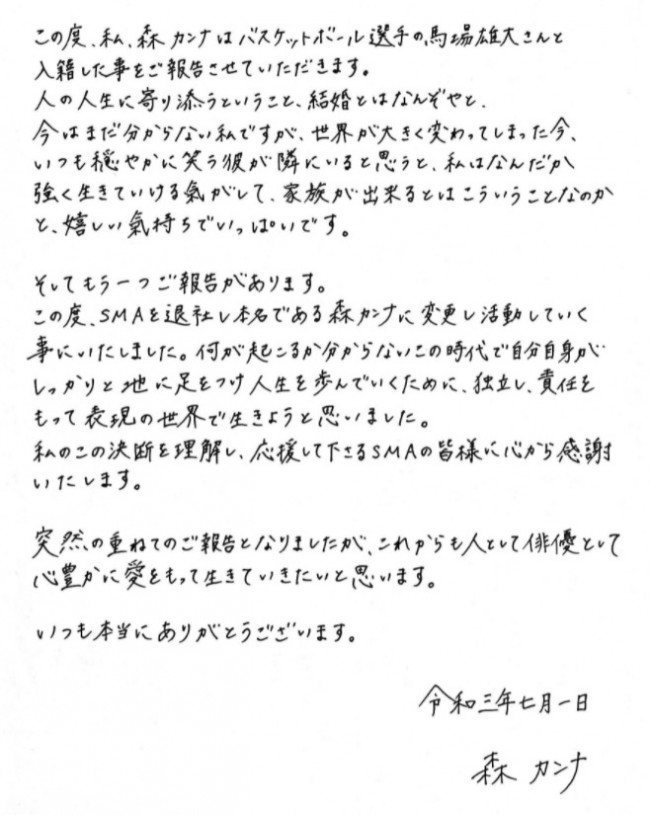 この度、私、森カンナはバスケットボール選手の馬場雄大さんと
入籍した事をご報告させていただきます。
人の人生に寄り添うということ、結婚とはなんぞやと、
今はまだ分からない私ですが、世界が大きく変わってしまった今、
いつも穏やかに笑う彼が隣にいると思うと、私はなんだか
強く生きていける氣がして、家族が出来るとはこういうことなのか
と、嬉しい氣持ちでいっぱいです。
そしてもう一つご報告があります。
この度、SMAを退社し本名である森カンナに変更し活動していく
事にいたしました。何が起こるか分からないこの時代で自分自身が
しっかりと地に足をつけ人生を歩んでいくために、独立し、責任を
もって表現の世界で生きようと思いました。
私のこの決断を理解し、応援して下さるSMAの皆様に心から感謝
いたします。
突然の重ねてのご報告となりましたが、これからも人として俳優として
心豊かに愛をもって生きていきたいと思います。
いつも本当にありがとうございます。
令和三年七月一日
森 カンナ